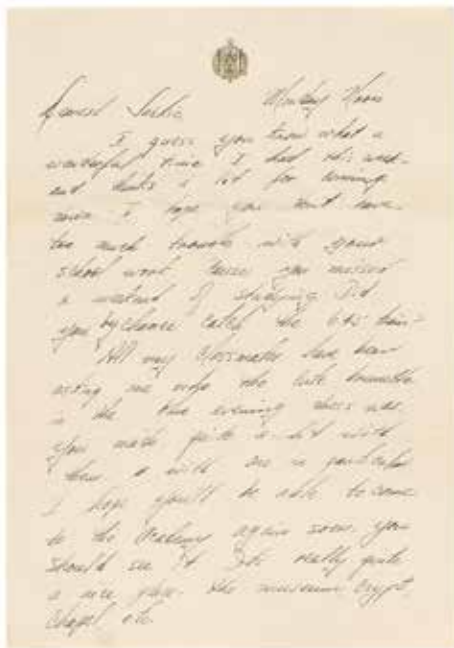 Dearest Jackie Monday Noon
I guess you know what a
wonderful time I had this week-
end thanks a lot for coming
I hope you won't have
too much trouble with your
school work since you missed
a weekend of studying Did
you by chance catch the 6:45 train
All my classmates have been
asking me who the cute brunette
in the blue evening dress was.
you made quite a hit with
them & with me in particular
I hope you'll be able to come
to the Academy again soon. you
should see it. It's really quite
a nice place. the museum, crypt,
chapel etc.